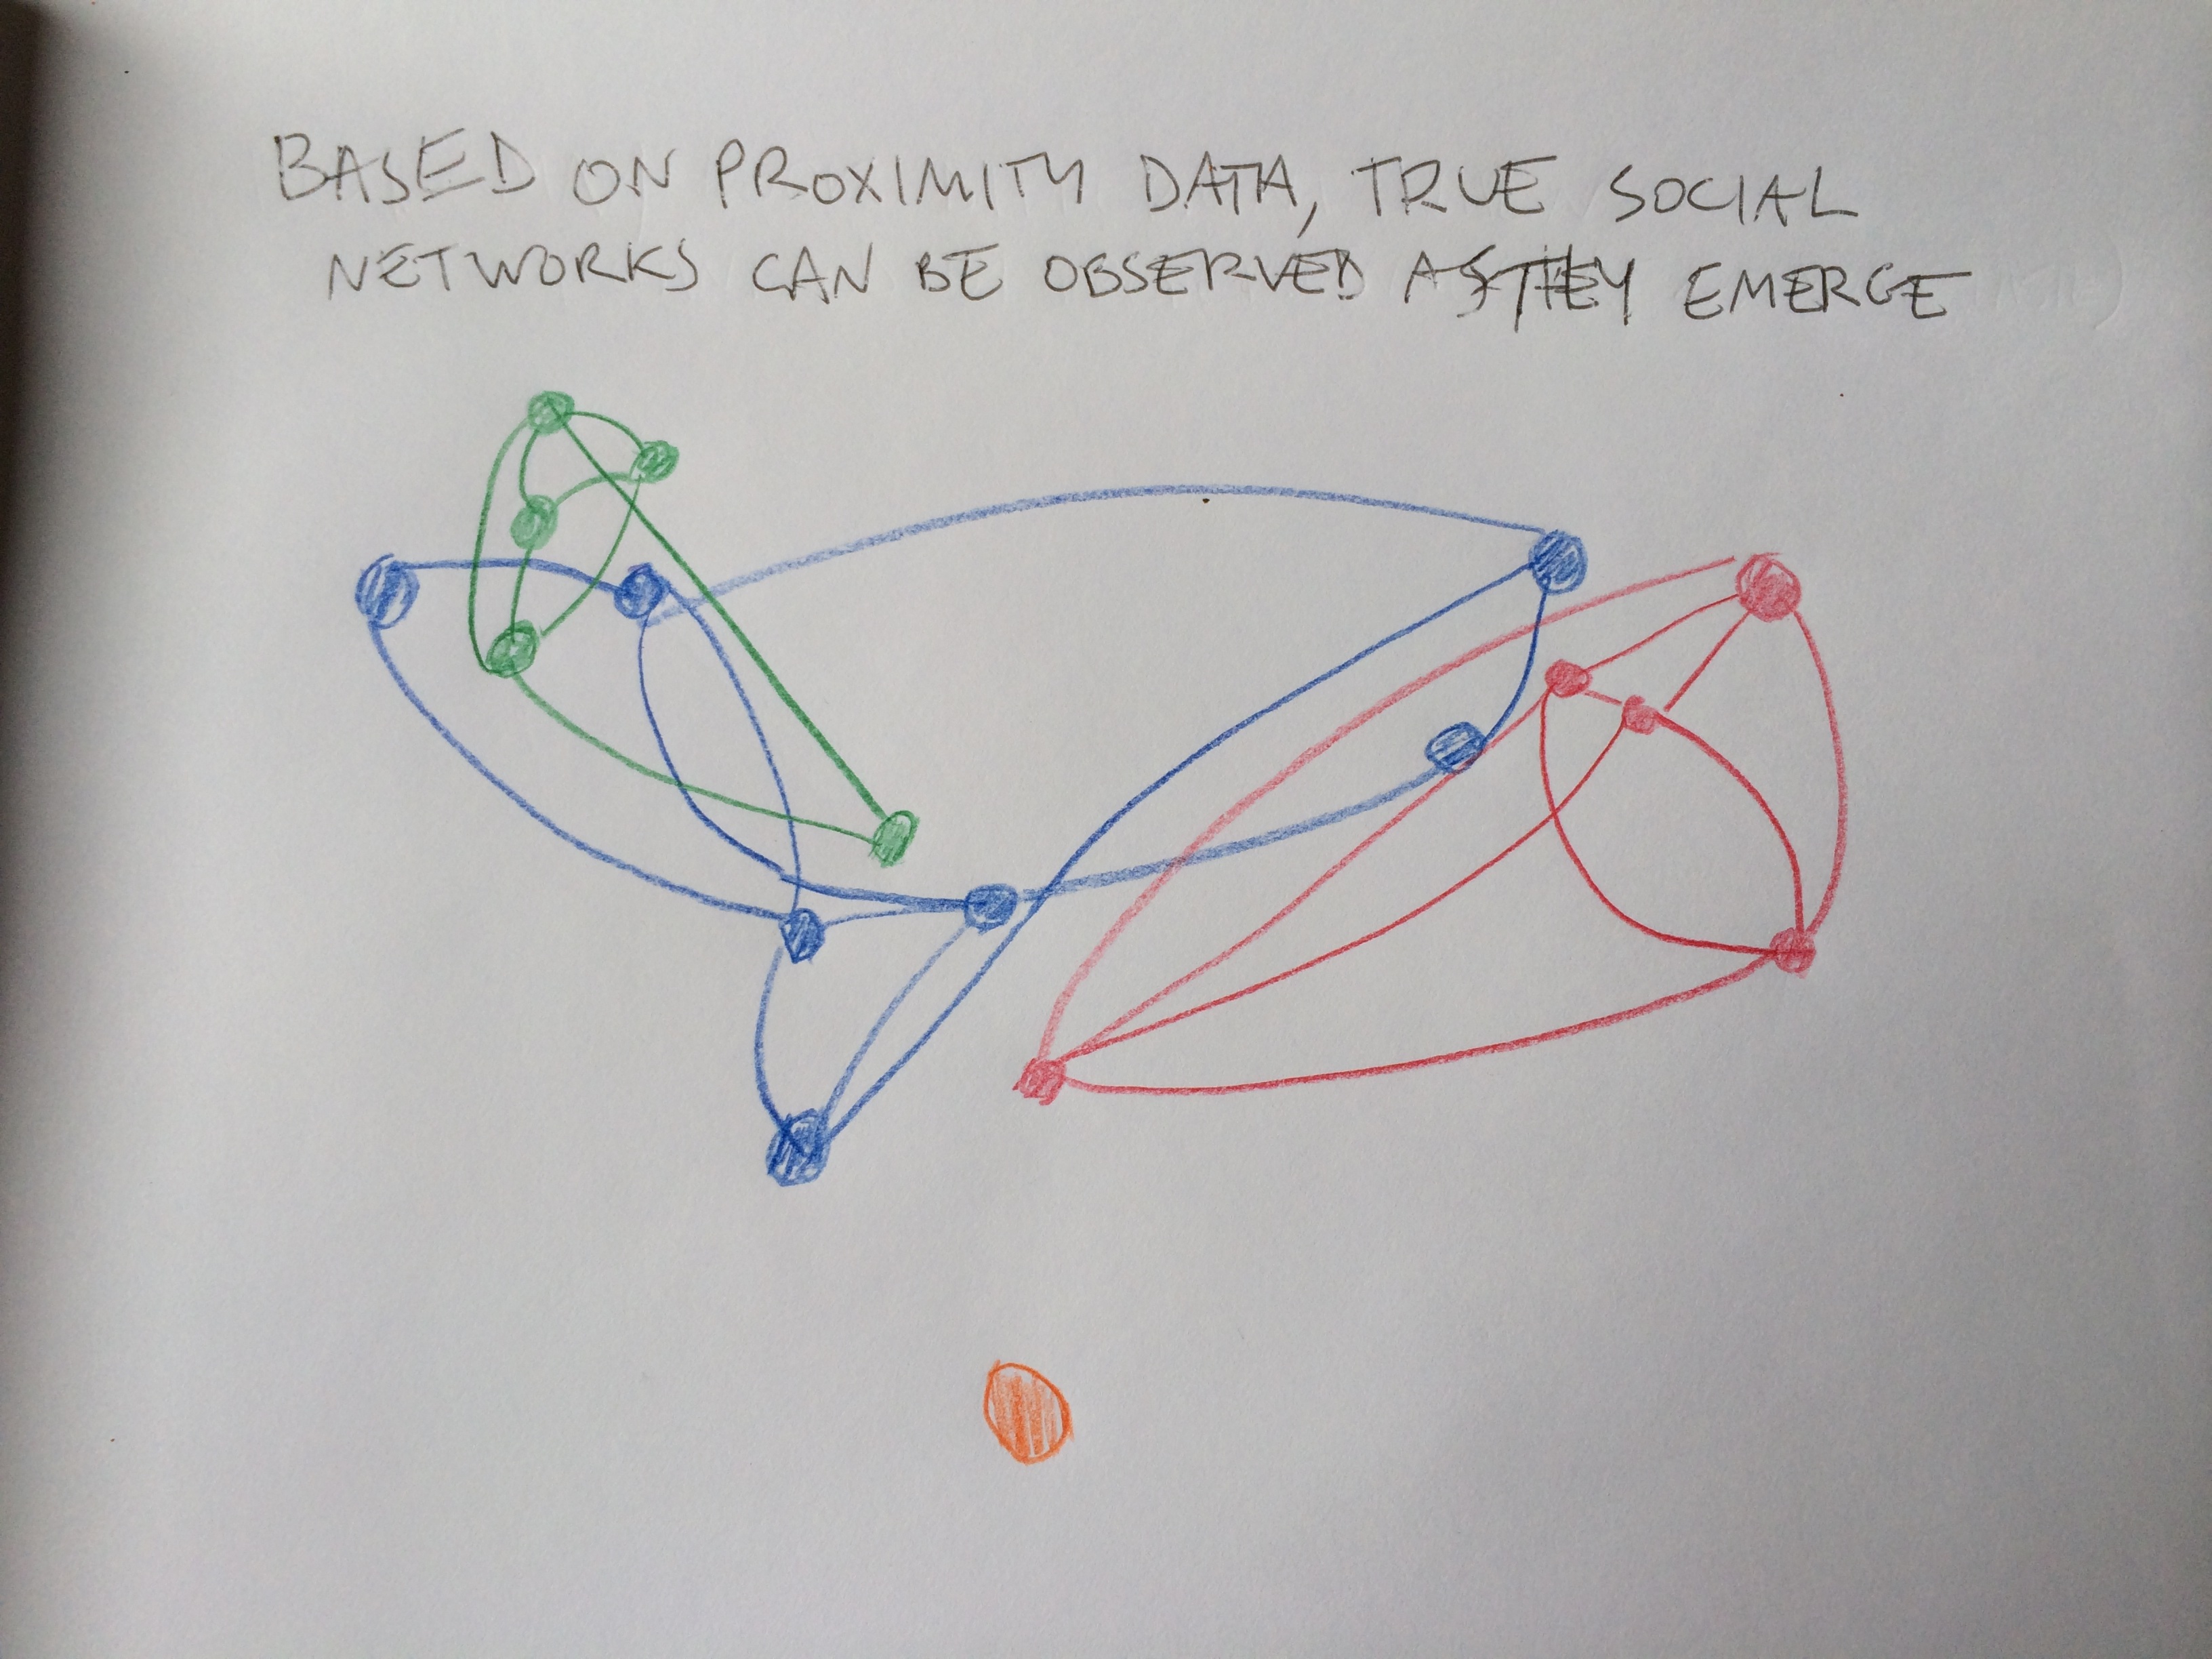 BASED ON PROXIMITY DATA, TRUE SOCIAL
NETWORKS CAN BE OBSERVED AS THEY EMERGE